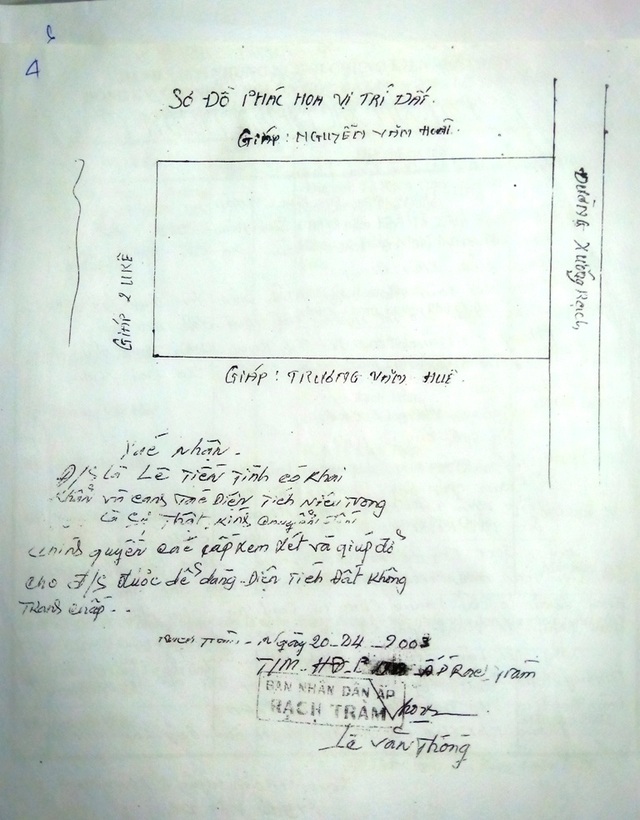 4
SƠ ĐỒ PHÁC HỌA VỊ TRÍ ĐẤT.
GIÁP: NGUYỄN VĂN
ĐƯỜNG XUỐNG RẠCH
GIÁP 2 LIKÊ
GIÁP: TRƯƠNG VĂN HUÊ.
Xác Nhận -
Đ/S Là Lê Tiến Tình có Khai
Khẩn và canh Tác Diện Tích Nêu Trong
Là Sự Thật, Kính chuyển
chính quyền các cấp xem xét và giúp đỡ
cho Đ/S được dễ dàng - Diện Tích Đất Không
Tranh chấp - -
Rạch Tràm - Ngày 20-04-2003
T/M - HĐ ẤP Rạch Tràm
BAN NHÂN DÂN ẤP
RẠCH TRÀM
Lê Văn Thông